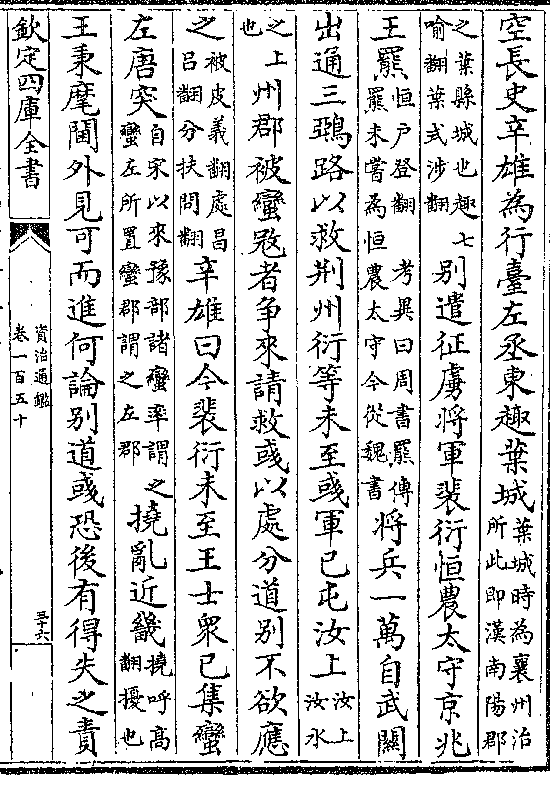 空長史辛雄為行臺左丞東趣葉城葉城時為襄州治所此即漢南陽郡
之葉縣城也趣七喻翻葉式涉翻別遣征虜將軍裴衍恒農太守京兆
王羆恒户登翻考異曰周書羆傳羆未嘗為恒農太守今從魏書將兵一萬自武關
出通三鵶路以救荆州衍等未至彧軍已屯汝上汝上汝水
之上也州郡被蠻㓂者争來請救彧以處分道別不欲應
之被皮義翻處昌吕翻分扶問翻辛雄曰今裴衍未至王士衆已集蠻
左唐突自宋以來豫部諸蠻率謂之蠻左所置蠻郡謂之左郡撓亂近畿撓呼高翻擾也
王秉麾閫外見可而進何論別道彧恐後有得失之責
欽定四庫全書
資治通鑑
卷一百五十